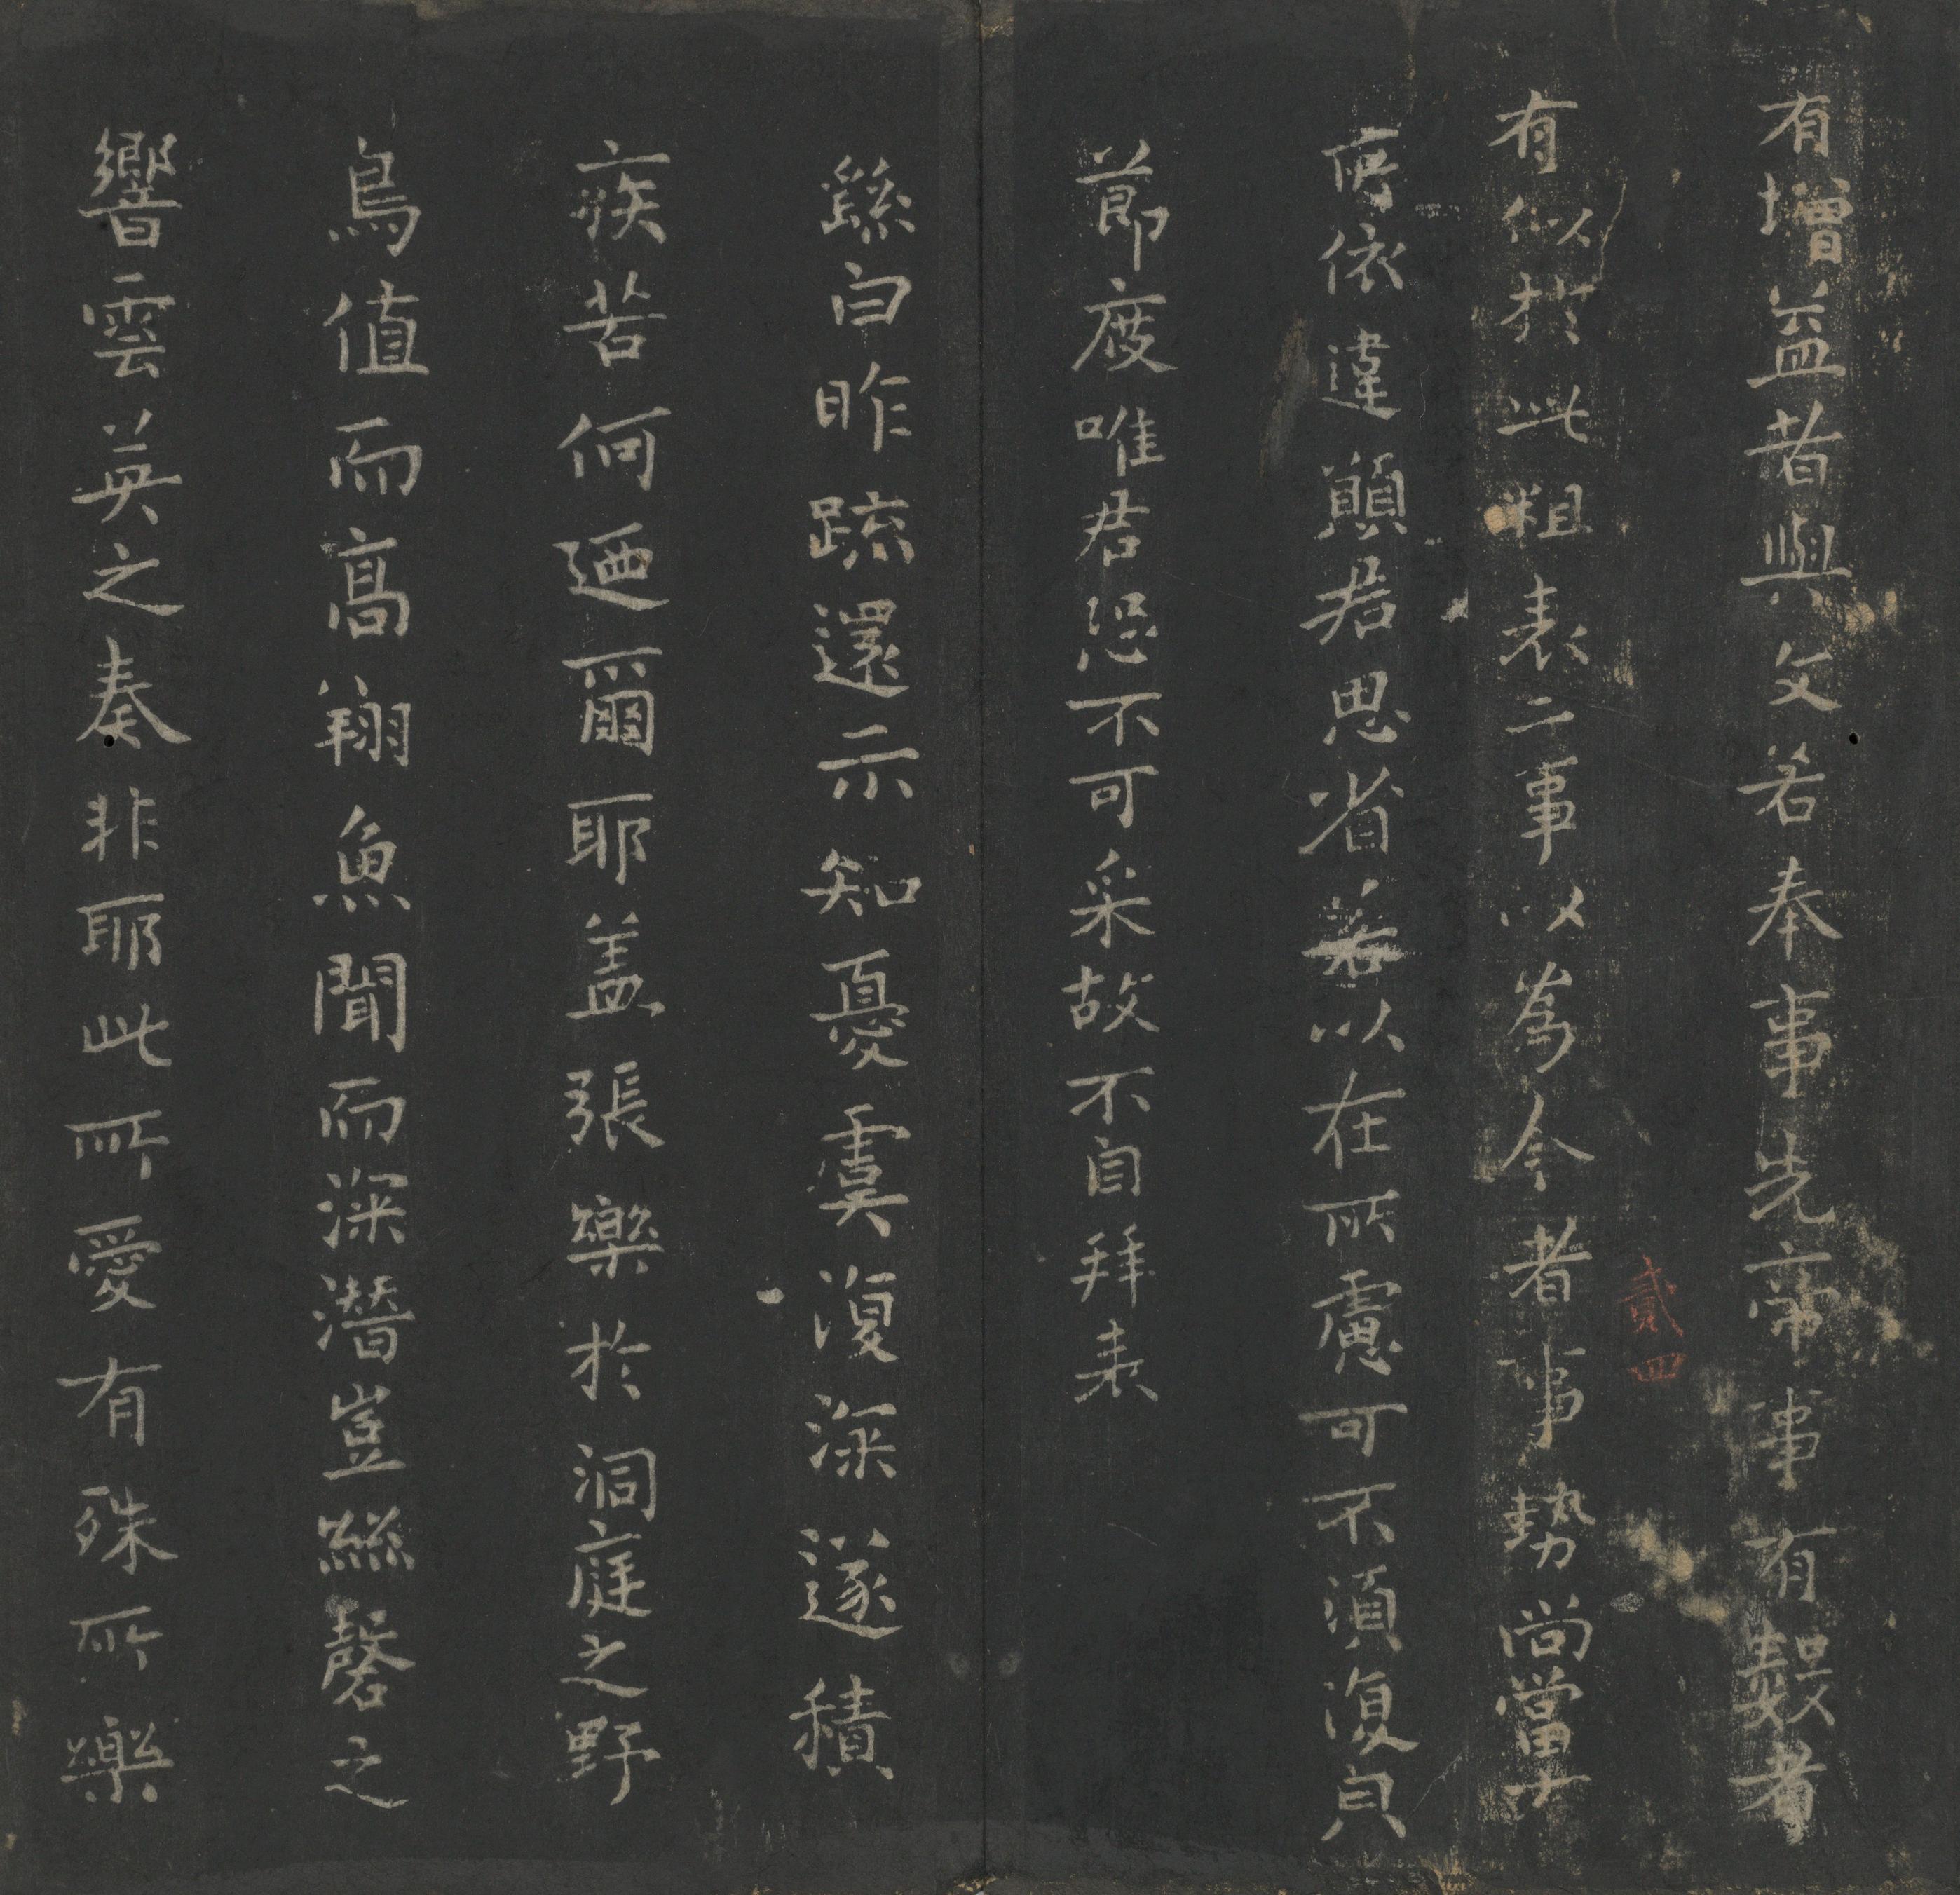 有增益者與文若奉事先帝事有數者
有似於此粗表二事以為今者事勢尚當有
所依違願君思省若以在所慮可不須復皃
貳四
節度唯君恐不可采故不自拜表
繇白昨疏還示知憂虞復深遂積
疾苦何迺爾耶蓋張樂於洞庭之野
鳥值而高翔魚聞而深潛豈絲磬之
響雲英之奏非耶此所愛有殊所樂